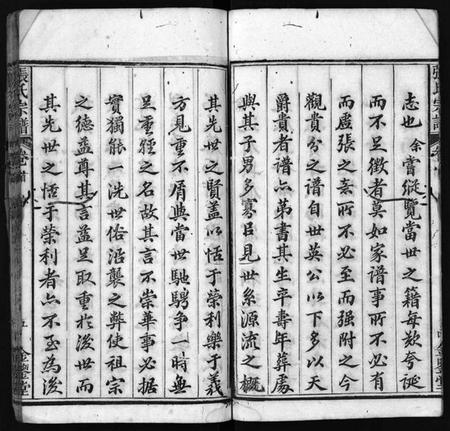 志也余嘗縱覽當世之籍每敖夸誕
而不足徵者莫如家譜事所不必有
而虛張之衷所不必至而强附之今
觀貴分之譜自世英公以下多以天
爵貴者譜亦第書其生卒壽年葬處
與其子男多寡臣見世系源流之概
其先世之賢蓋以恬于榮利樂于義
方見重不屑與當世馳騁爭一時無
足重經之名故其言不崇華事必据
實獨能一洗世俗沿襲之弊使祖宗
之德益尊其言益足取重於後世而
其先世之恬于榮利者亦不至為後
張氏宗譜
卷首
五
金鑒堂